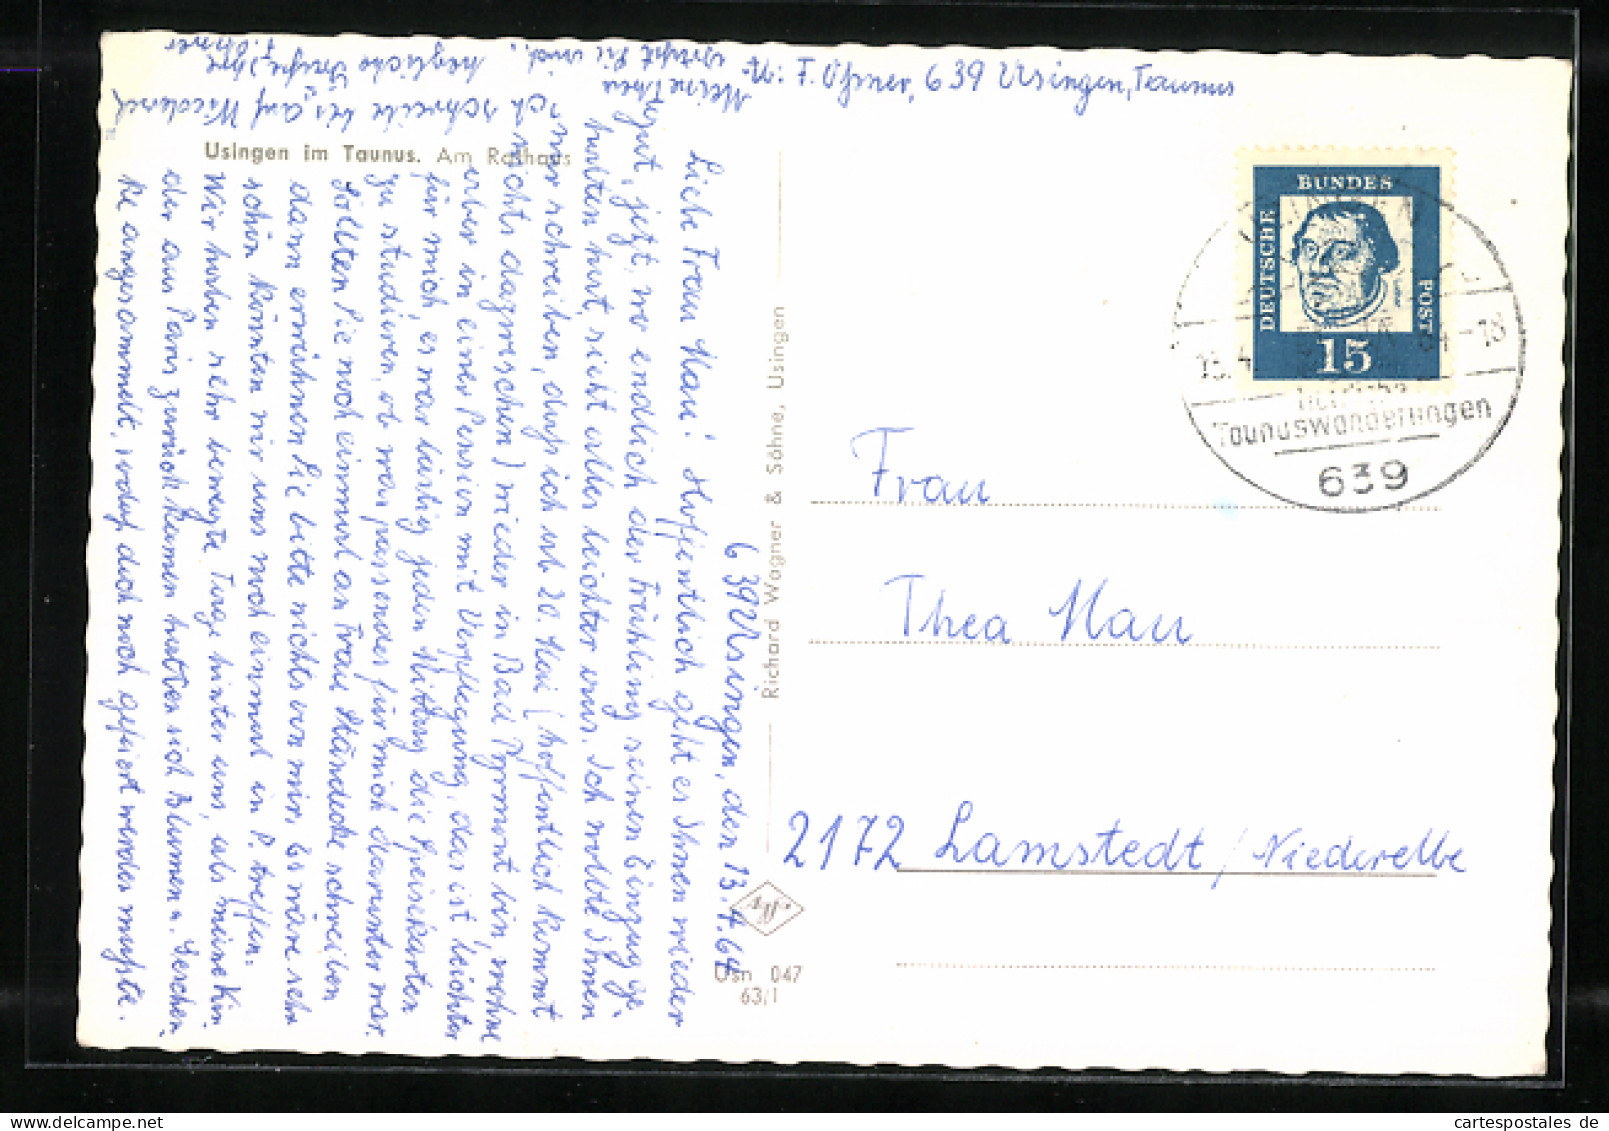 A.: F. Ohmer, 639 Usingen, Taunus
Usingen im Taunus. Am Rathaus
6 39 Usingen, den 13.4.64
Liebe Frau Mau! Hoffentlich geht es Ihnen wieder
gut, jetzt wo endlich der Frühling seinen Einzug ge-
halten hat, sieht alles leichter aus. Ich wollte Ihnen
nur schreiben, daß ich ab 20. Mai (hoffentlich kommt
nichts dazwischen) wieder in Bad Pyrmont bin, wohne
aber in einer Pension mit Verpflegung, das ist leichter
für mich, es war lästig jeden Mittag die Speisekarten
zu studieren, ob was passendes für mich darunter war.
Sollten Sie noch einmal an Frau schreiben
dann erwähnen Sie bitte nichts von mir. Es wäre sehr
schön könnten wir uns noch einmal in P. treffen.
Wir haben sehr bewegte Tage hinter uns, als meine Kin-
der aus Paris zurück kamen hatten sich Blumen u. Geschen-
ke angesammelt, u. doch noch gefeiert werden mußte.
Ich schließe bis „auf Wiedersehen"
herzliche Grüße, Ihre
F. Ohmer
Richard Wagner & Söhne, Usingen
Agfa
Usn 047
63/1
DEUTSCHE
BUNDES
POST
15
USINGEN
13.4.64-18
Taunuswanderungen
639
Frau
Thea Mau
2172 Lamstedt / Niederelbe
cartespostales de